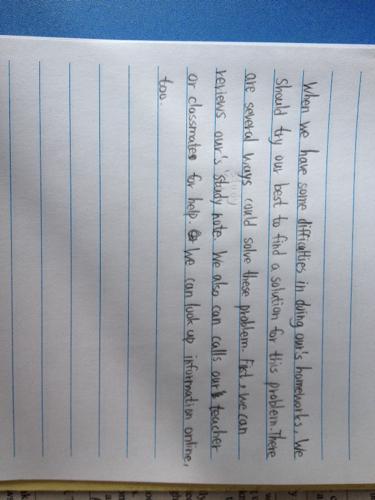 When we have some difficulties in doing our's homeworks, We
should try our best to find a solution for this problem. There
are several ways could solve these problem. First, we can
reviews our's study note. We also can calls our teacher
or classmates for help. We can look up information online,
too.